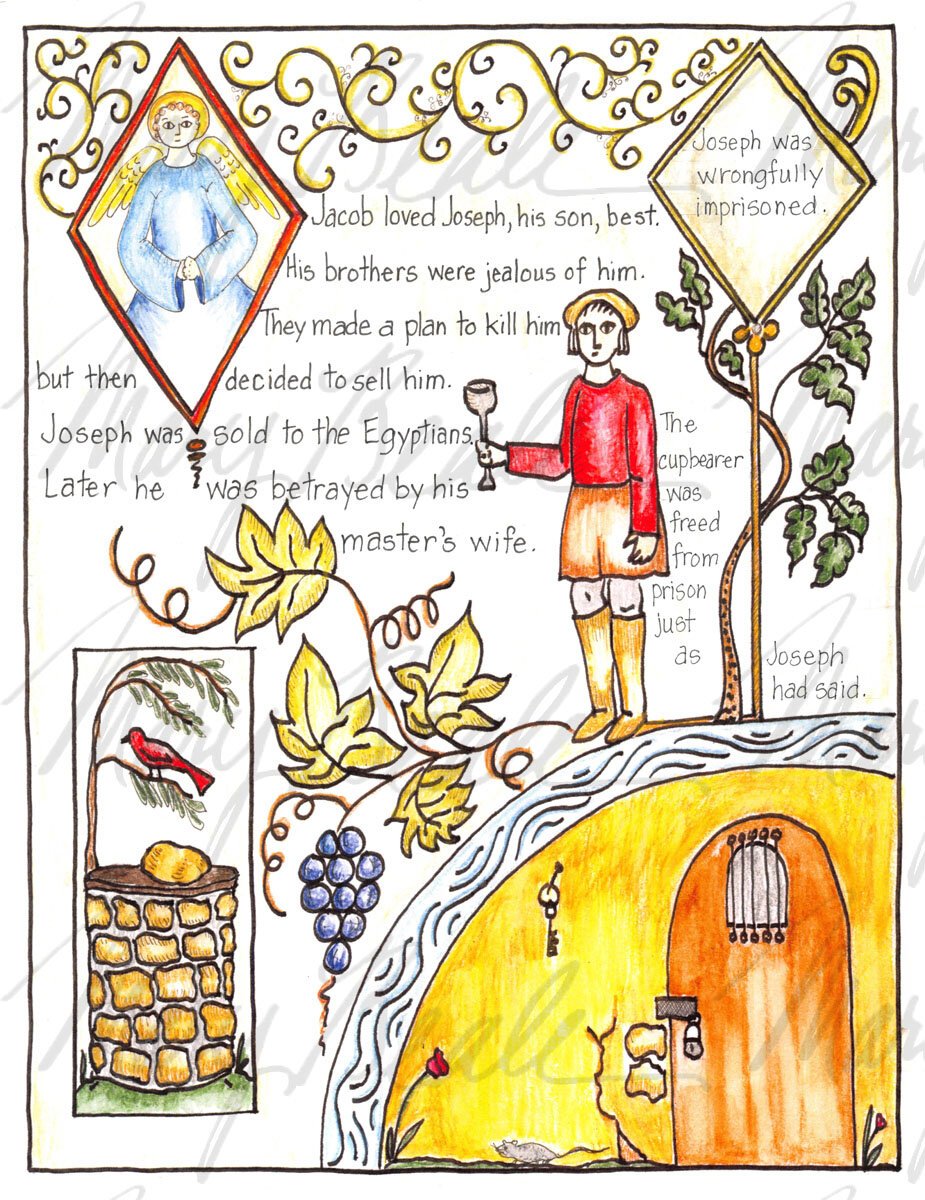 Jacob loved Joseph, his son, best.
His brothers were jealous of him.
They made a plan to kill him
but then decided to sell him.
Joseph was sold to the Egyptians.
Later he was betrayed by his
master's wife.
Joseph was
wrongfully
imprisoned.
The
cupbearer
was
freed
from
prison
just
as
Joseph
had said.
Mary Beale